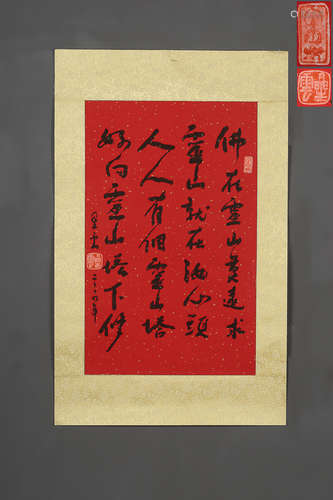 佛在靈山莫遠求
靈山就在汝心頭
人人有個靈山塔
好向靈山塔下修
星雲